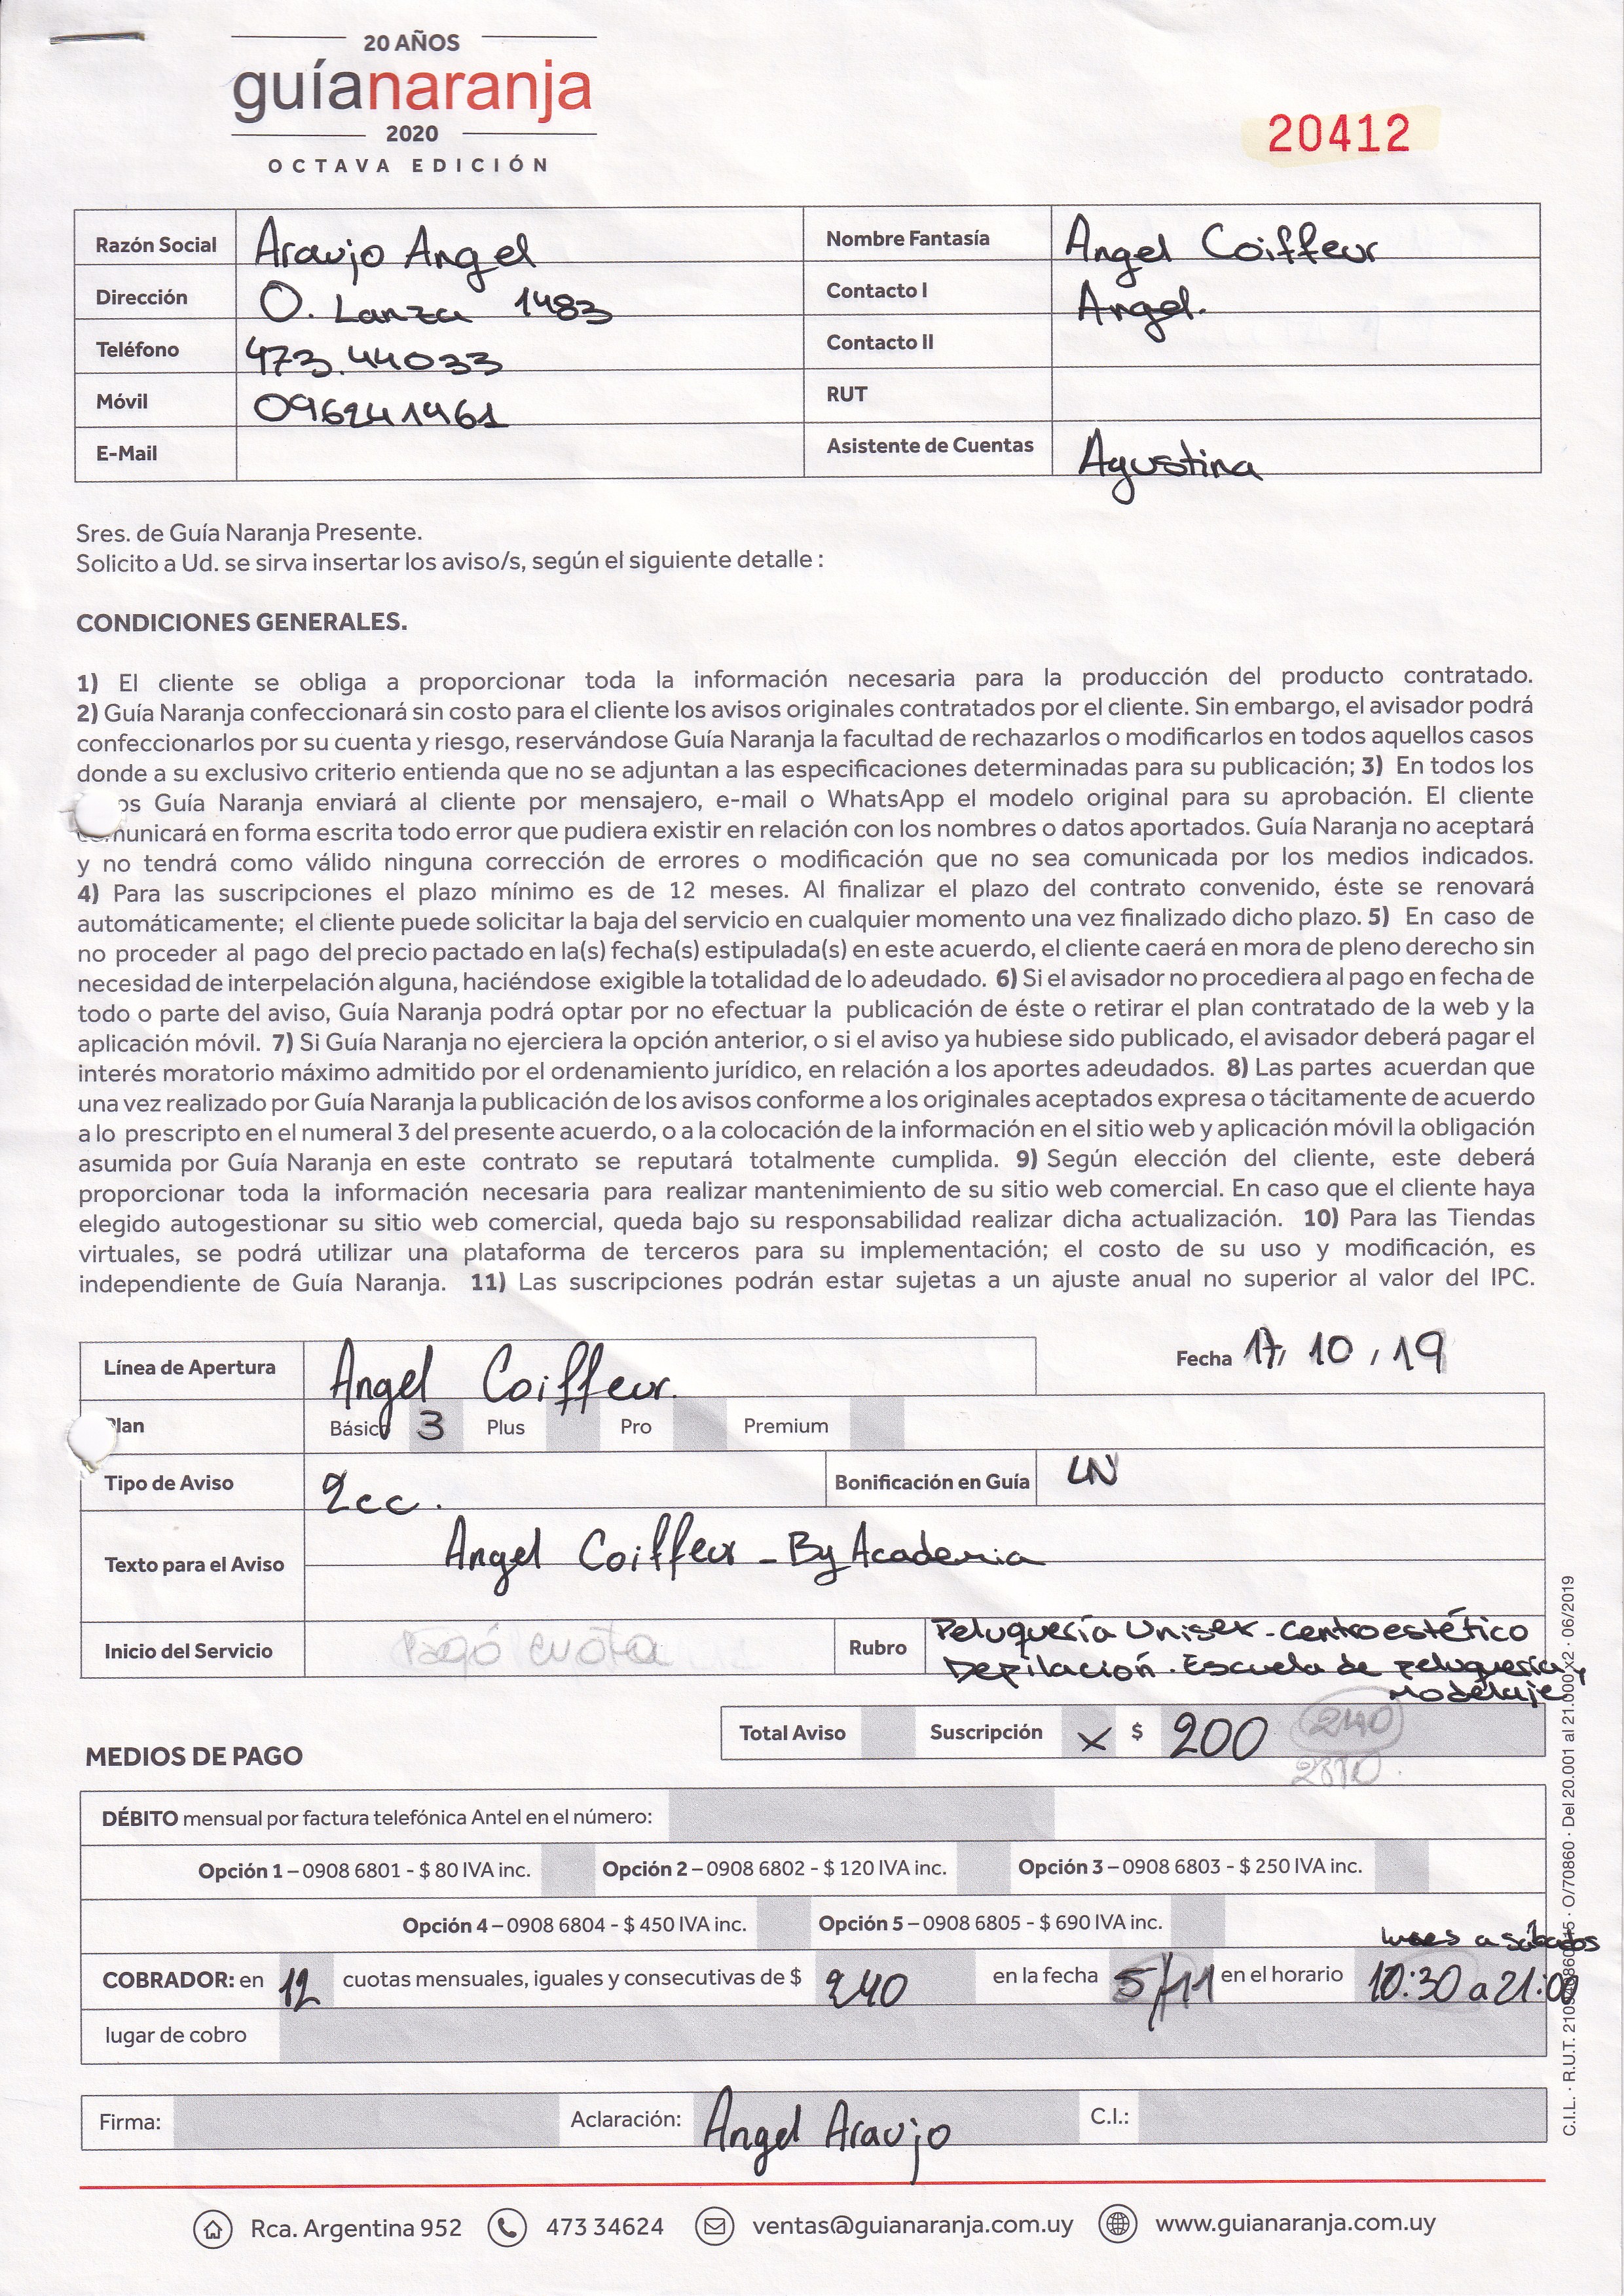 20 AÑOS
guíanaranja
2020
OCTAVA EDICIÓN
20412
Razón Social Araujo Angel Nombre Fantasía Angel Coiffeur
Dirección O. Lanza 1483 Contacto I Angel.
Teléfono 473.44033 Contacto II
Móvil 096241961 RUT
E-Mail Asistente de Cuentas Agustina
Sres. de Guía Naranja Presente.
Solicito a Ud. se sirva insertar los aviso/s, según el siguiente detalle :
CONDICIONES GENERALES.
1) El cliente se obliga a proporcionar toda la información necesaria para la producción del producto contratado.
2) Guía Naranja confeccionará sin costo para el cliente los avisos originales contratados por el cliente. Sin embargo, el avisador podrá
confeccionarlos por su cuenta y riesgo, reservándose Guía Naranja la facultad de rechazarlos o modificarlos en todos aquellos casos
donde a su exclusivo criterio entienda que no se adjuntan a las especificaciones determinadas para su publicación; 3) En todos los
os Guía Naranja enviará al cliente por mensajero, e-mail o WhatsApp el modelo original para su aprobación. El cliente
municará en forma escrita todo error que pudiera existir en relación con los nombres o datos aportados. Guía Naranja no aceptará
y no tendrá como válido ninguna corrección de errores o modificación que no sea comunicada por los medios indicados.
4) Para las suscripciones el plazo mínimo es de 12 meses. Al finalizar el plazo del contrato convenido, éste se renovará
automáticamente; el cliente puede solicitar la baja del servicio en cualquier momento una vez finalizado dicho plazo. 5) En caso de
no proceder al pago del precio pactado en la(s) fecha(s) estipulada(s) en este acuerdo, el cliente caerá en mora de pleno derecho sin
necesidad de interpelación alguna, haciéndose exigible la totalidad de lo adeudado. 6) Si el avisador no procediera al pago en fecha de
todo o parte del aviso, Guía Naranja podrá optar por no efectuar la publicación de éste o retirar el plan contratado de la web y la
aplicación móvil. 7) Si Guía Naranja no ejerciera la opción anterior, o si el aviso ya hubiese sido publicado, el avisador deberá pagar el
interés moratorio máximo admitido por el ordenamiento jurídico, en relación a los aportes adeudados. 8) Las partes acuerdan que
una vez realizado por Guía Naranja la publicación de los avisos conforme a los originales aceptados expresa o tácitamente de acuerdo
a lo prescripto en el numeral 3 del presente acuerdo, o a la colocación de la información en el sitio web y aplicación móvil la obligación
asumida por Guía Naranja en este contrato se reputará totalmente cumplida. 9) Según elección del cliente, este deberá
proporcionar toda la información necesaria para realizar mantenimiento de su sitio web comercial. En caso que el cliente haya
elegido autogestionar su sitio web comercial, queda bajo su responsabilidad realizar dicha actualización. 10) Para las Tiendas
virtuales, se podrá utilizar una plataforma de terceros para su implementación; el costo de su uso y modificación, es
independiente de Guía Naranja. 11) Las suscripciones podrán estar sujetas a un ajuste anual no superior al valor del IPC.
Línea de Apertura Angel Coiffeur. Fecha 17/ 10 / 19
lan Básico 3 Plus Pro Premium
Tipo de Aviso 2cc. Bonificación en Guía LN
Texto para el Aviso Angel Coiffeur - By Academia
Inicio del Servicio Pagó cuota Rubro Peluquería Unisex - Centro estético
Depilación. Escuela de peluquería y
Modelaje
Total Aviso Suscripción X $ 200 240
MEDIOS DE PAGO
DÉBITO mensual por factura telefónica Antel en el número:
Opción 1 – 0908 6801 - $ 80 IVA inc. Opción 2 – 0908 6802 - $ 120 IVA inc. Opción 3 – 0908 6803 - $ 250 IVA inc.
Opción 4 – 0908 6804 - $ 450 IVA inc. Opción 5 – 0908 6805 - $ 690 IVA inc.
lunes a sábados
COBRADOR: en 12 cuotas mensuales, iguales y consecutivas de $ 240 en la fecha 5/11 en el horario 10:30 a 21:00
lugar de cobro
Firma: Aclaración: Angel Araujo C.I.:
C.I.L. · R.U.T. · O/70860 · Del 20.001 al 21.000 x2 · 06/2019
Rca. Argentina 952 473 34624 ventas@guianaranja.com.uy www.guianaranja.com.uy